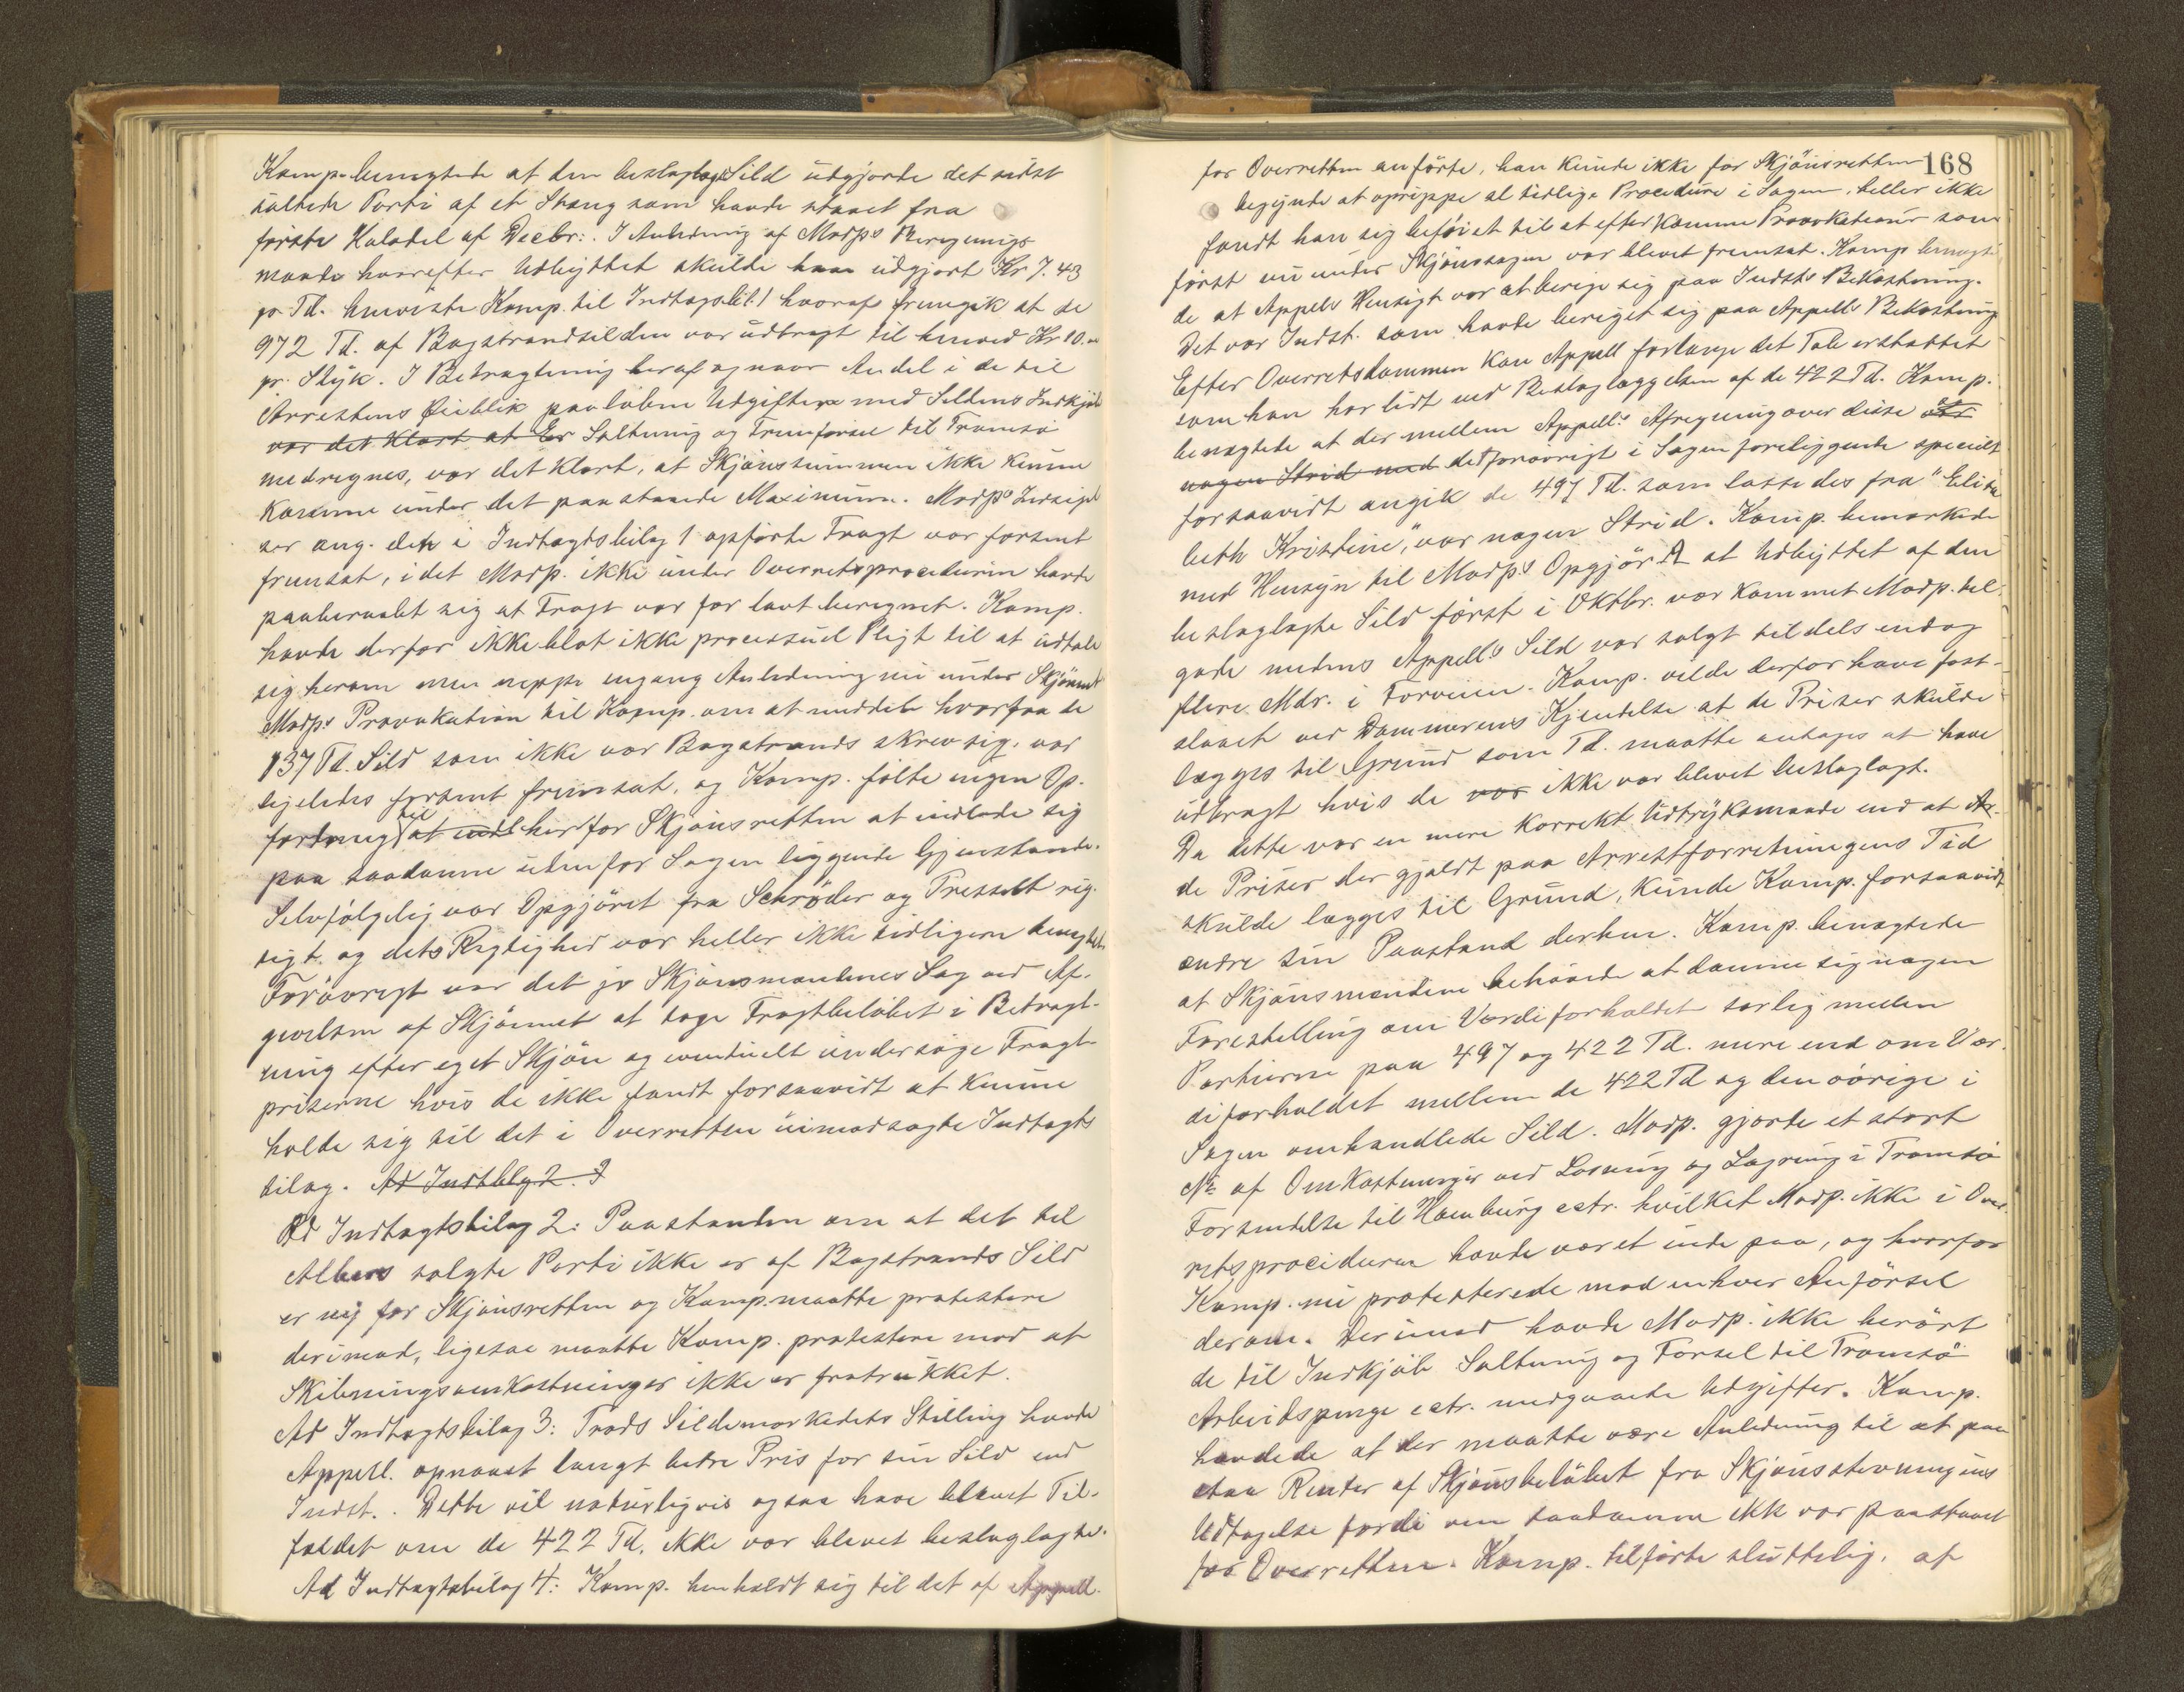 Komp. benegtede at den beslaglagte Sild udgjorde det sidst
saltede Parti af et Stæng som havde staaet fra
første Halvdel af Decbr:. I Anledning af Modp.s Beregnings-
maade hvorefter Udbyttet skulde have udgjort Kr 7.43
pr. Td. henviste Komp. til Indtægtsbil. 1 hvoraf fremgik at de
972 Td. af Bagstrandsilden var udbragt til henved Kr 10.00
pr. Styk. I Betragtning heraf og naar Andel i de til
Arrestens Øieblik paaløbne Udgifter med Sildens Indkjøb
var det klart at Er Saltning og Fremførsel til Tromsø
medregnes, var det klart, at Skjønssummen ikke kunne
komme under det paastaaede Maximum. Modp.s Indsigel
ser ang. den i Indtægtsbilag 1 opførte Fragt var forsent
fremsat, idet Modp. ikke under Overretsproceduren havde
paaberaabt sig at Fragt var for lavt beregnet. Komp.
havde derfor ikke blot ikke processuel Pligt til at udtale
sig herom men neppe engang Anledning nu under Skjønnet
Modp.s Provokation til Komp. om at meddele hvorfra de
137 Td. Sild som ikke var Bagstrands skrev sig, var
ligeledes forsent fremsat, og Komp. følte ingen Op-
fordring til at indl her for Skjønsretten at indlade sig
paa saadanne udenfor Sagen liggende Gjenstande.
Selvfølgelig var Opgjøret fra Schrøder og Tresselt rig-
tigt og dets Rigtighed var heller ikke tidligere benegtet.
Forøvrigt var det jo Skjønsmændenes Sag ved Af-
givelsen af Skjønnet at tage Fragtbeløbet i Betragt-
ning efter eget Skjøn og eventuelt undersøge Fragt-
priserne hvis de ikke fandt forsaavidt at kunne
holde sig til det i Overretten uimodsagte Indtægts
bilag. Ad Indtblg 2. I
Ad Indtægtsbilag 2: Paastanden om at det til
Albers solgte Parti ikke er af Bagstrands Sild
er ny for Skjønsretten og Komp. maatte protestere
derimod, ligesaa maatte Komp. protestere mod at
Skibningsomkostninger ikke er fratrukket.
Ad Indtægtsbilag 3: Trods Sildemarkedets Stilling havde
Appell. opnaaet langt bedre Pris for sin Sild end
Indst.. Dette vil naturligvis ogsaa have blevet Til-
fældet om de 422 Td. ikke var blevet beslaglagte.
Ad Indtægtsbilag 4: Komp. henholdt sig til det af Appell.
168
for Overretten anførte, han kunde ikke for Skjønsretten
begynde at oprippe al tidlige Procedure i Sagen, heller ikke
fandt han sig beføiet til at efterkomme Provokationer som
først nu under Skjønssagen var blevet fremsat. Komp. benegte
de at Appells Hensigt var at berige sig paa Indsts Bekostning.
Det var Indst. som havde beriget sig paa Appells Bekostning
Efter Overretsdommen kan Appell forlange det Tab erstattet
som han har lidt ved Beslaglæggelsen af de 422 Td. Komp.
benegtede at der mellem Appells Afregning over disse
nogen Strid med det forøvrigt i Sagen foreliggende specielt
forsaavidt angik de 497 Td. som lossedes fra "Elisa
beth Kristine", var nogen Strid. Komp. bemærkede
med Hensyn til Modp.s Opgjør A at Udbyttet af den
beslaglagte Sild først i Oktbr. var kommet Modp. til
gode medens Appells Sild var solgt tildels endog
flere Mdr. i Forveien. Komp. vilde derfor have fast-
slaaet ved Dommerens Kjendelse at de Priser skulde
lægges til Grund som Td. maatte antages at have
udbragt hvis de var ikke var blevet beslaglagt.
Da dette var en mere korrekt Udtryksmaade end at Ar-
de Priser der gjaldt paa Arrestforretningens Tid
skulde lægges til Grund, kunde Komp. forsaavidt
ændre sin Paastand derhen. Komp. benegtede
at Skjønsmændene behøvede at danne sig nogen
Forestilling om Værdiforholdet særlig mellem
Partierne paa 497 og 422 Td. mere end om Vær-
diforholdet mellem de 422 Td og den øvrige i
Sagen omhandlede Silde. Modp. gjorde et stort
No. af Omkostninger ved Losning og Lagring i Tromsø
Forsendelse til Hamburg cetr. hvilket Modp. ikke i Over-
retsproceduren havde været inde paa, og hvorfor
Komp. nu protesterede mod enhver Anførsel
derom. Derimod havde Modp. ikke berørt
de til Indkjøb Saltning og Førsel til Tromsø
Arbeidspenge cetr. medgaaede Udgifter. Komp.
hævdede at der maatte være Anledning til at paa
staa Renter af Skjønsbeløbet fra Skjønsstevningens
Udtagelse fordi om saadanne ikke var paastaaet
for Overretten. Komp. tilførte sluttelig, at